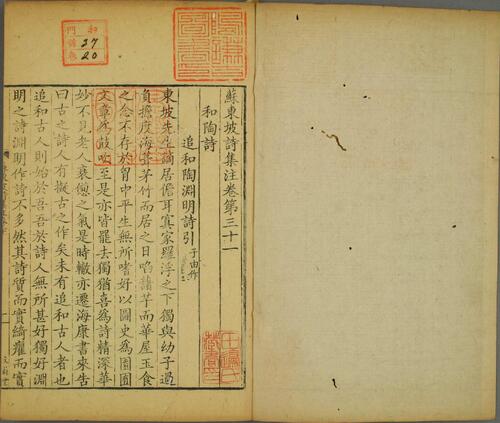 蘇東坡詩集注卷第三十一
和陶詩
追和陶淵明詩引 子由作
東坡先生謫居儋耳寘家羅浮之下獨與幼子過
負擔度海葺茅竹而居之日啗藷芋而華屋玉食
之念不存於胷中平生無所嗜好以圖史為園囿
文章為鼓吹至是亦皆罷去獨猶喜為詩精深華
妙不見老人衰憊之氣是時轍亦遷海康書來告
曰古之詩人有擬古之作矣未有追和古人者也
追和古人則始於吾吾於詩人無所甚好獨好淵
明之詩淵明作詩不多然其詩質而實綺癯而實
一
文蔚堂
和
門
37
20